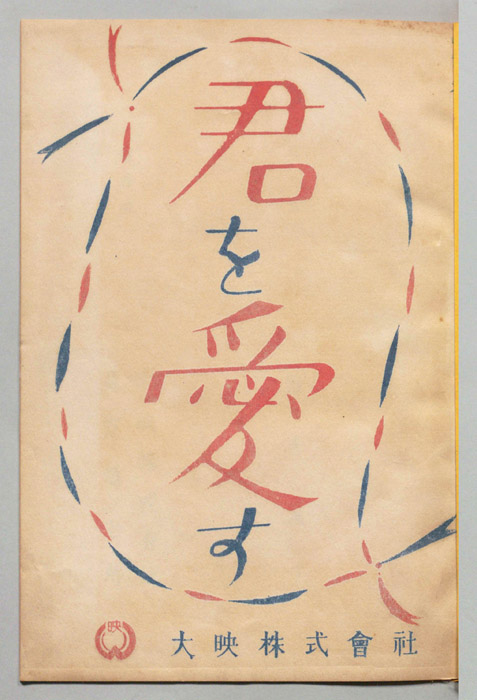 君を愛す
映
大映株式會社